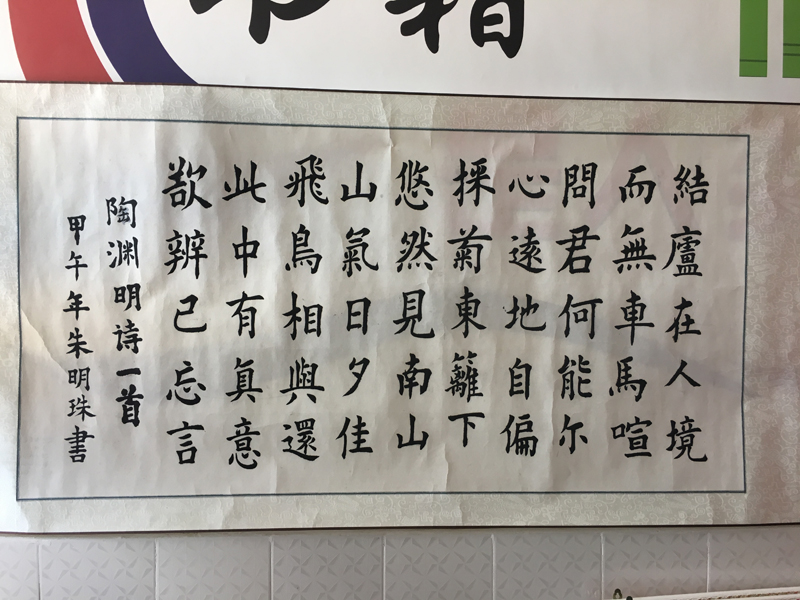 結廬在人境
而無車馬喧
問君何能尔
心遠地自偏
採菊東籬下
悠然見南山
山氣日夕佳
飛鳥相與還
此中有真意
欲辨已忘言
陶渊明诗一首
甲午年朱明珠書